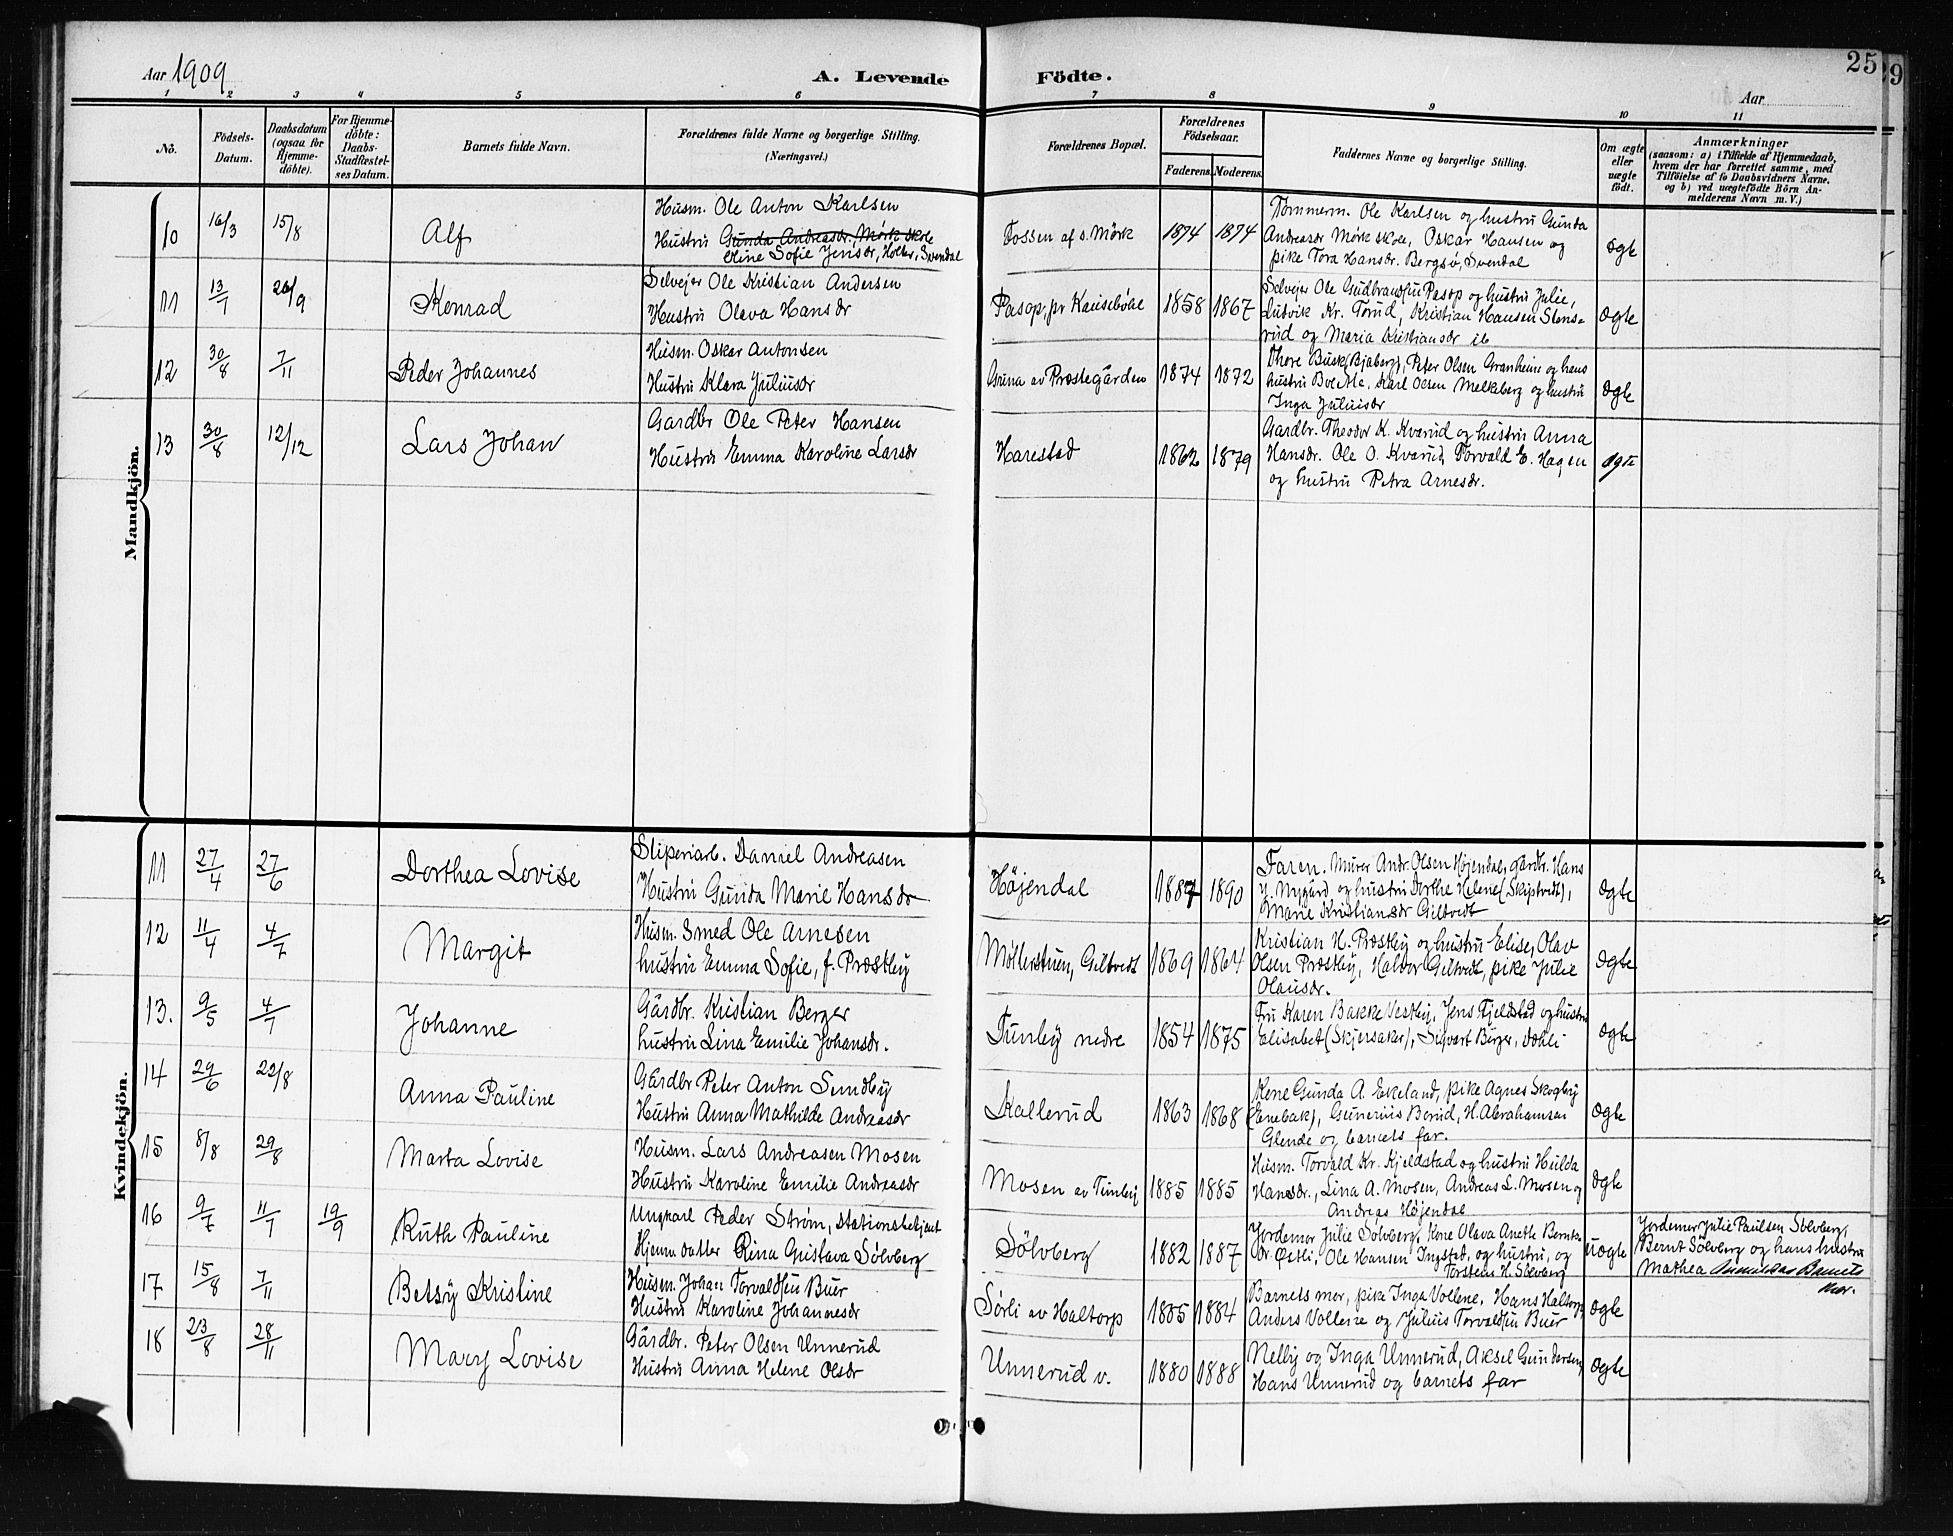 Aar 1909
A. Levende Födte.
25
29
Aar
1 2 3 4 5 6 7 8 9 10 11
No.
Födsels-Datum.
Daabsdatum (ogsaa for Hjemme-döbte).
For Hjemme-döbte: Daabs-Stadfæstel-ses Datum.
Barnets fulde Navn.
Forældrenes fulde Navne og borgerlige Stilling.
(Næringsvei.)
Forældrenes Bopæl.
Forældrenes Födselsaar.
Faderens. Moderens.
Faddernes Navne og borgerlige Stilling.
Om ægte eller uægte födt.
Anmærkninger
(saasom: a) i Tilfælde af Hjemmedaab,
hvem der har forrettet samme, med
Tilföielse af to Daabsvidners Navne,
og b) ved uægtefödte Börn An-
melderens Navn m. V.)
Mandkjön.
10 16/3 15/8 Alf
Husm. Ole Anton Karlsen
Hustru Gunda Andreasdr. Mørk skole
Oline Sofie Jensdr, Holter, Svendal
Fossen af s. Mørk 1874 1874
Tømmerm. Ole Karlsen og hustru Gunda
Andreasdr Mørk skole, Oskar Hansen og
pike Tora Hansdr. Bergsø, Svendal
ægte
11 13/7 26/9 Konrad
Selvejer Ole Kristian Andersen
Hustru Olava Hansdr
Pasop, pr Kausebøle 1858 1867
Selvejer Ole Gudbrandsen Pasop og hustru Julie,
Ludvik Kr. Torud, Kristian Hansen Stens-
rud og Maria Kristiansdr ib
ægte
12 30/8 7/11 Peder Johannes
Husm. Oskar Antonsen
Hustru Klara Juliusdr
Gruna av Prøstegården 1874 1872
Thore Busk (Bjaberg), Peter Olsen Granheim og hans
hustru Bolette, Karl Olsen Melleberg og hustru
Inga Juliusdr
ægte
13 30/8 12/12 Lars Johan
Gardbr Ole Peter Hansen
Hustru Emma Karoline Larsdr
Harestad 1862 1879
Gardbr. Theodor K. Kvarud og hustru Anna
Hansdr. Ole O. Kvarud, Torvald E. Hagen
og hustru Petra Arnesdr.
ægte
Kvindekjön.
11 27/4 27/6 Dorthea Lovise
Sliperiarb. Daniel Andreasen
Hustru Gunda Marie Hansdr
Højendal 1887 1890
Faren. Murer Andr. Olsen Højendal, Gardbr. Hans
J. Nygård og hustru Dorthe Helene (Skiptvedt),
Marie Kristiansdr Giltvedt
ægte
12 11/4 4/7 Margit
Husm. Smed Ole Arnesen
hustru Emma Sofie, f. Præstby
Møllerstuen, Giltvedt 1869 1864
Kristian H. Præstby og hustru Elise, Olav
Olsen Præstby, Halvor Giltvedt, pike Julie
Olausdr.
ægte
13. 9/5 4/7 Johanne
Gårdbr. Kristian Berger
hustru Lina Emilie Johansdr.
Tunby nedre 1854 1875
Fru Karen Bakke Vestby, Jens Fjeldstad og hustru
Elisabet (Skjersaker), Sigvart Berger, Dæhli
ægte
14 29/6 22/8 Anna Pauline
Gårdbr Peter Anton Sundby
Hustru Anna Mathilde Andreasdr
Kallerud 1863 1868
Kone Gunda A. Ekeland, pike Agnes Skogby
(Enebak), Gunerius Borud, H. Abrahamsen
Glende og barnets far.
ægte
15 8/8 29/8 Marta Lovise
Husm. Lars Andreasen Mosen
Hustru Karoline Emilie Andreasdr
Mosen av Tunby 1885 1885
Husm. Torvald Kr. Kjeldstad og hustru Hulda
Hansdr., Lina A. Mosen, Andreas L. Mosen og
Andreas Højendal
ægte
16 9/7 11/7 19/9 Ruth Pauline
Ungkarl Peder Strøm, stationsbetjent
Hjemv. datter Rina Gustava Sølvberg
Sølvberg 1882 1887
Jordemor Julie Sølvberg, Kone Olava Anette Bernts-
dr. Østli, Ole Hansen Ingstad, og hustru, og
Torstein H. Sølvberg
uægte
Jordemor Julie Paulsen Sølvberg,
Bernt Sølvberg og hans hustru
Mathea Barnets
Mor.
17 15/8 7/11 Betsy Kristine
Husm. Johan Torvaldsen Buer
Hustru Karoline Johannesdr
Sørli av Haltorp 1885 1884
Barnets mor, pike Inga Vollene, Hans Haltorp,
Anders Vollene og Julius Torvaldsen Buer
ægte
18 23/8 28/11 Mary Lovise
Gårdbr. Peter Olsen Unnerud
Hustru Anna Helene Olsdr
Unnerud v. 1880 1888
Nelly og Inga Unnerud, Aksel Gundersen,
Hans Unnerud og barnets far
ægte